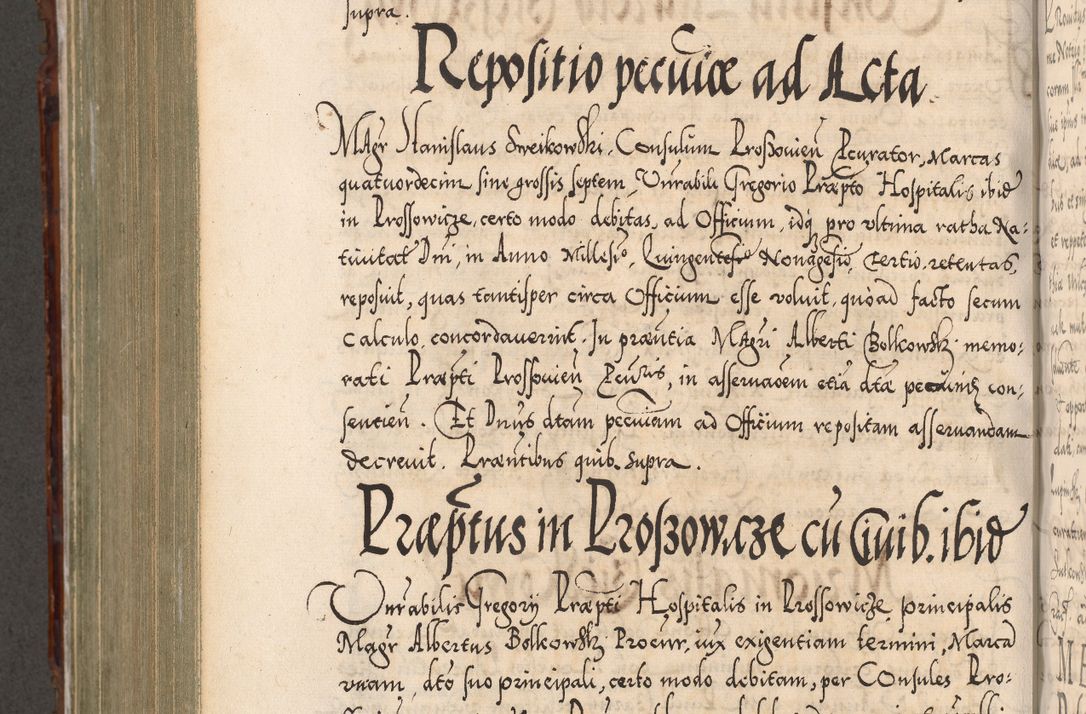 supra.
Repositio pecuniæ ad Acta.
Magr Stanislaus Sweikowski, Consulum Proszouien̄ Pcurator, Marcas
quatuordecim sine grossis septem, Vnrabili Gregorio Præpto Hospitalis ibid
in Prossowicze, certo modo debitas, ad Officium, idq pro vltima ratha Na-
tiuitat Dni, in Anno Millesio, Quingentesio Nonagesio, Tertio, retentas,
reposuit, quas tantisper circa Officium esse voluit, quoad facto secum
calculo, concordauerint. In præntia Magri Alberti Bolkowsky memo-
rati Præpti Prossouien̄ Pcuris, in asseruaoem etiā dtæ pecuniæ con-
sentien̄. Et Dnus dtam pecuniam ad Officium repositam asseruandam
decreuit. Præntibus quib supra.
Præptus in Proszowicze cū Ciuib. ibid
Vnrabilis Gregorij Præpti Hospitalis in Prossowicze principalis
Magr Albertus Bolkowsky Procur, iux exigentiam termini, Marcā
vnam, dto suo principali, certo modo debitam, per Consules Pro-